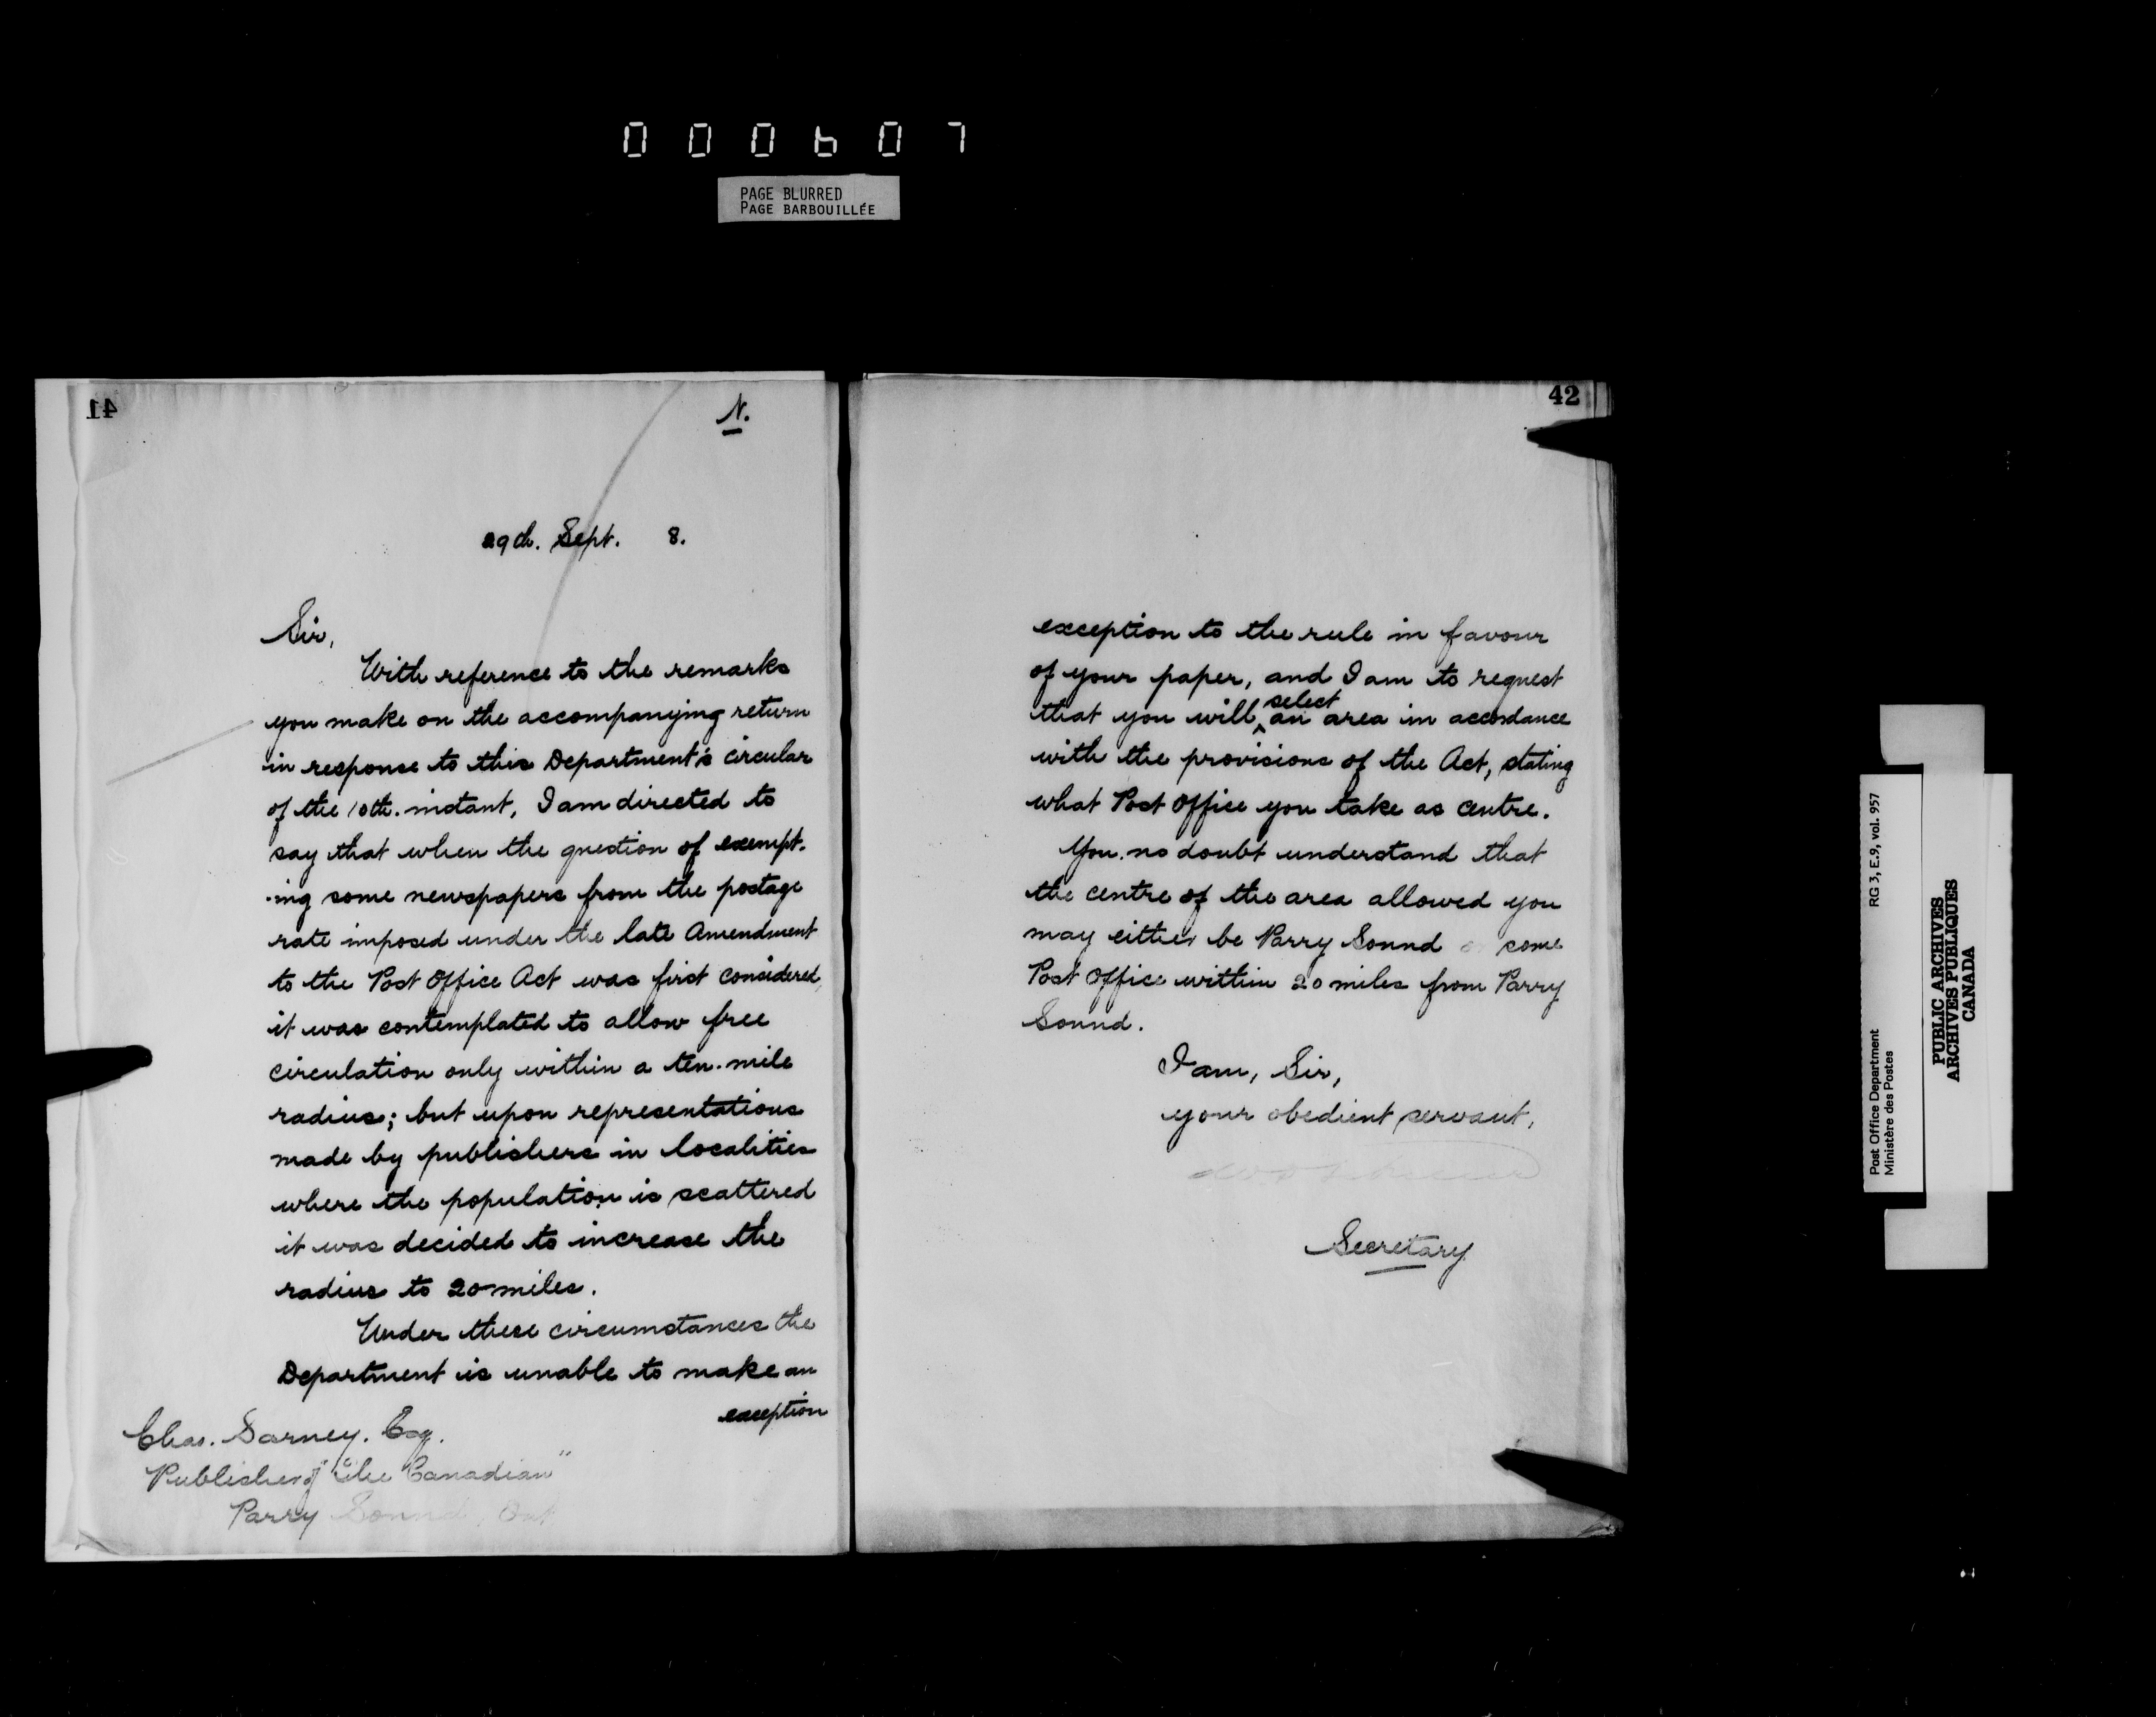 000607
PAGE BLURRED
PAGE BARBOUILLÉE
41
N.
29th. Sept. 8.
Sir,
With reference to the remarks
you make on the accompanying return
in response to this Department's circular
of the 10th. instant, I am directed to
say that when the question of exempt-
-ing some newspapers from the postage
rate imposed under the late Amendment
to the Post Office Act was first considered,
it was contemplated to allow free
circulation only within a ten-mile
radius; but upon representations
made by publishers in localities
where the population is scattered
it was decided to increase the
radius to 20 miles.
Under these circumstances the
Department is unable to make an
exception
Chas. Sarney. Esq.
Publisher of "The Canadian"
Parry Sound, Ont
42
exception to the rule in favour
of your paper, and I am to request
that you will select an area in accordance
with the provisions of the Act, stating
what Post Office you take as centre.
You no doubt understand that
the centre of the area allowed you
may either be Parry Sound or some
Post Office within 20 miles from Parry
Sound.
I am, Sir,
your obedient servant,
Secretary
Post Office Department RG 3, E.9, vol. 957
Ministère des Postes
PUBLIC ARCHIVES
ARCHIVES PUBLIQUES
CANADA